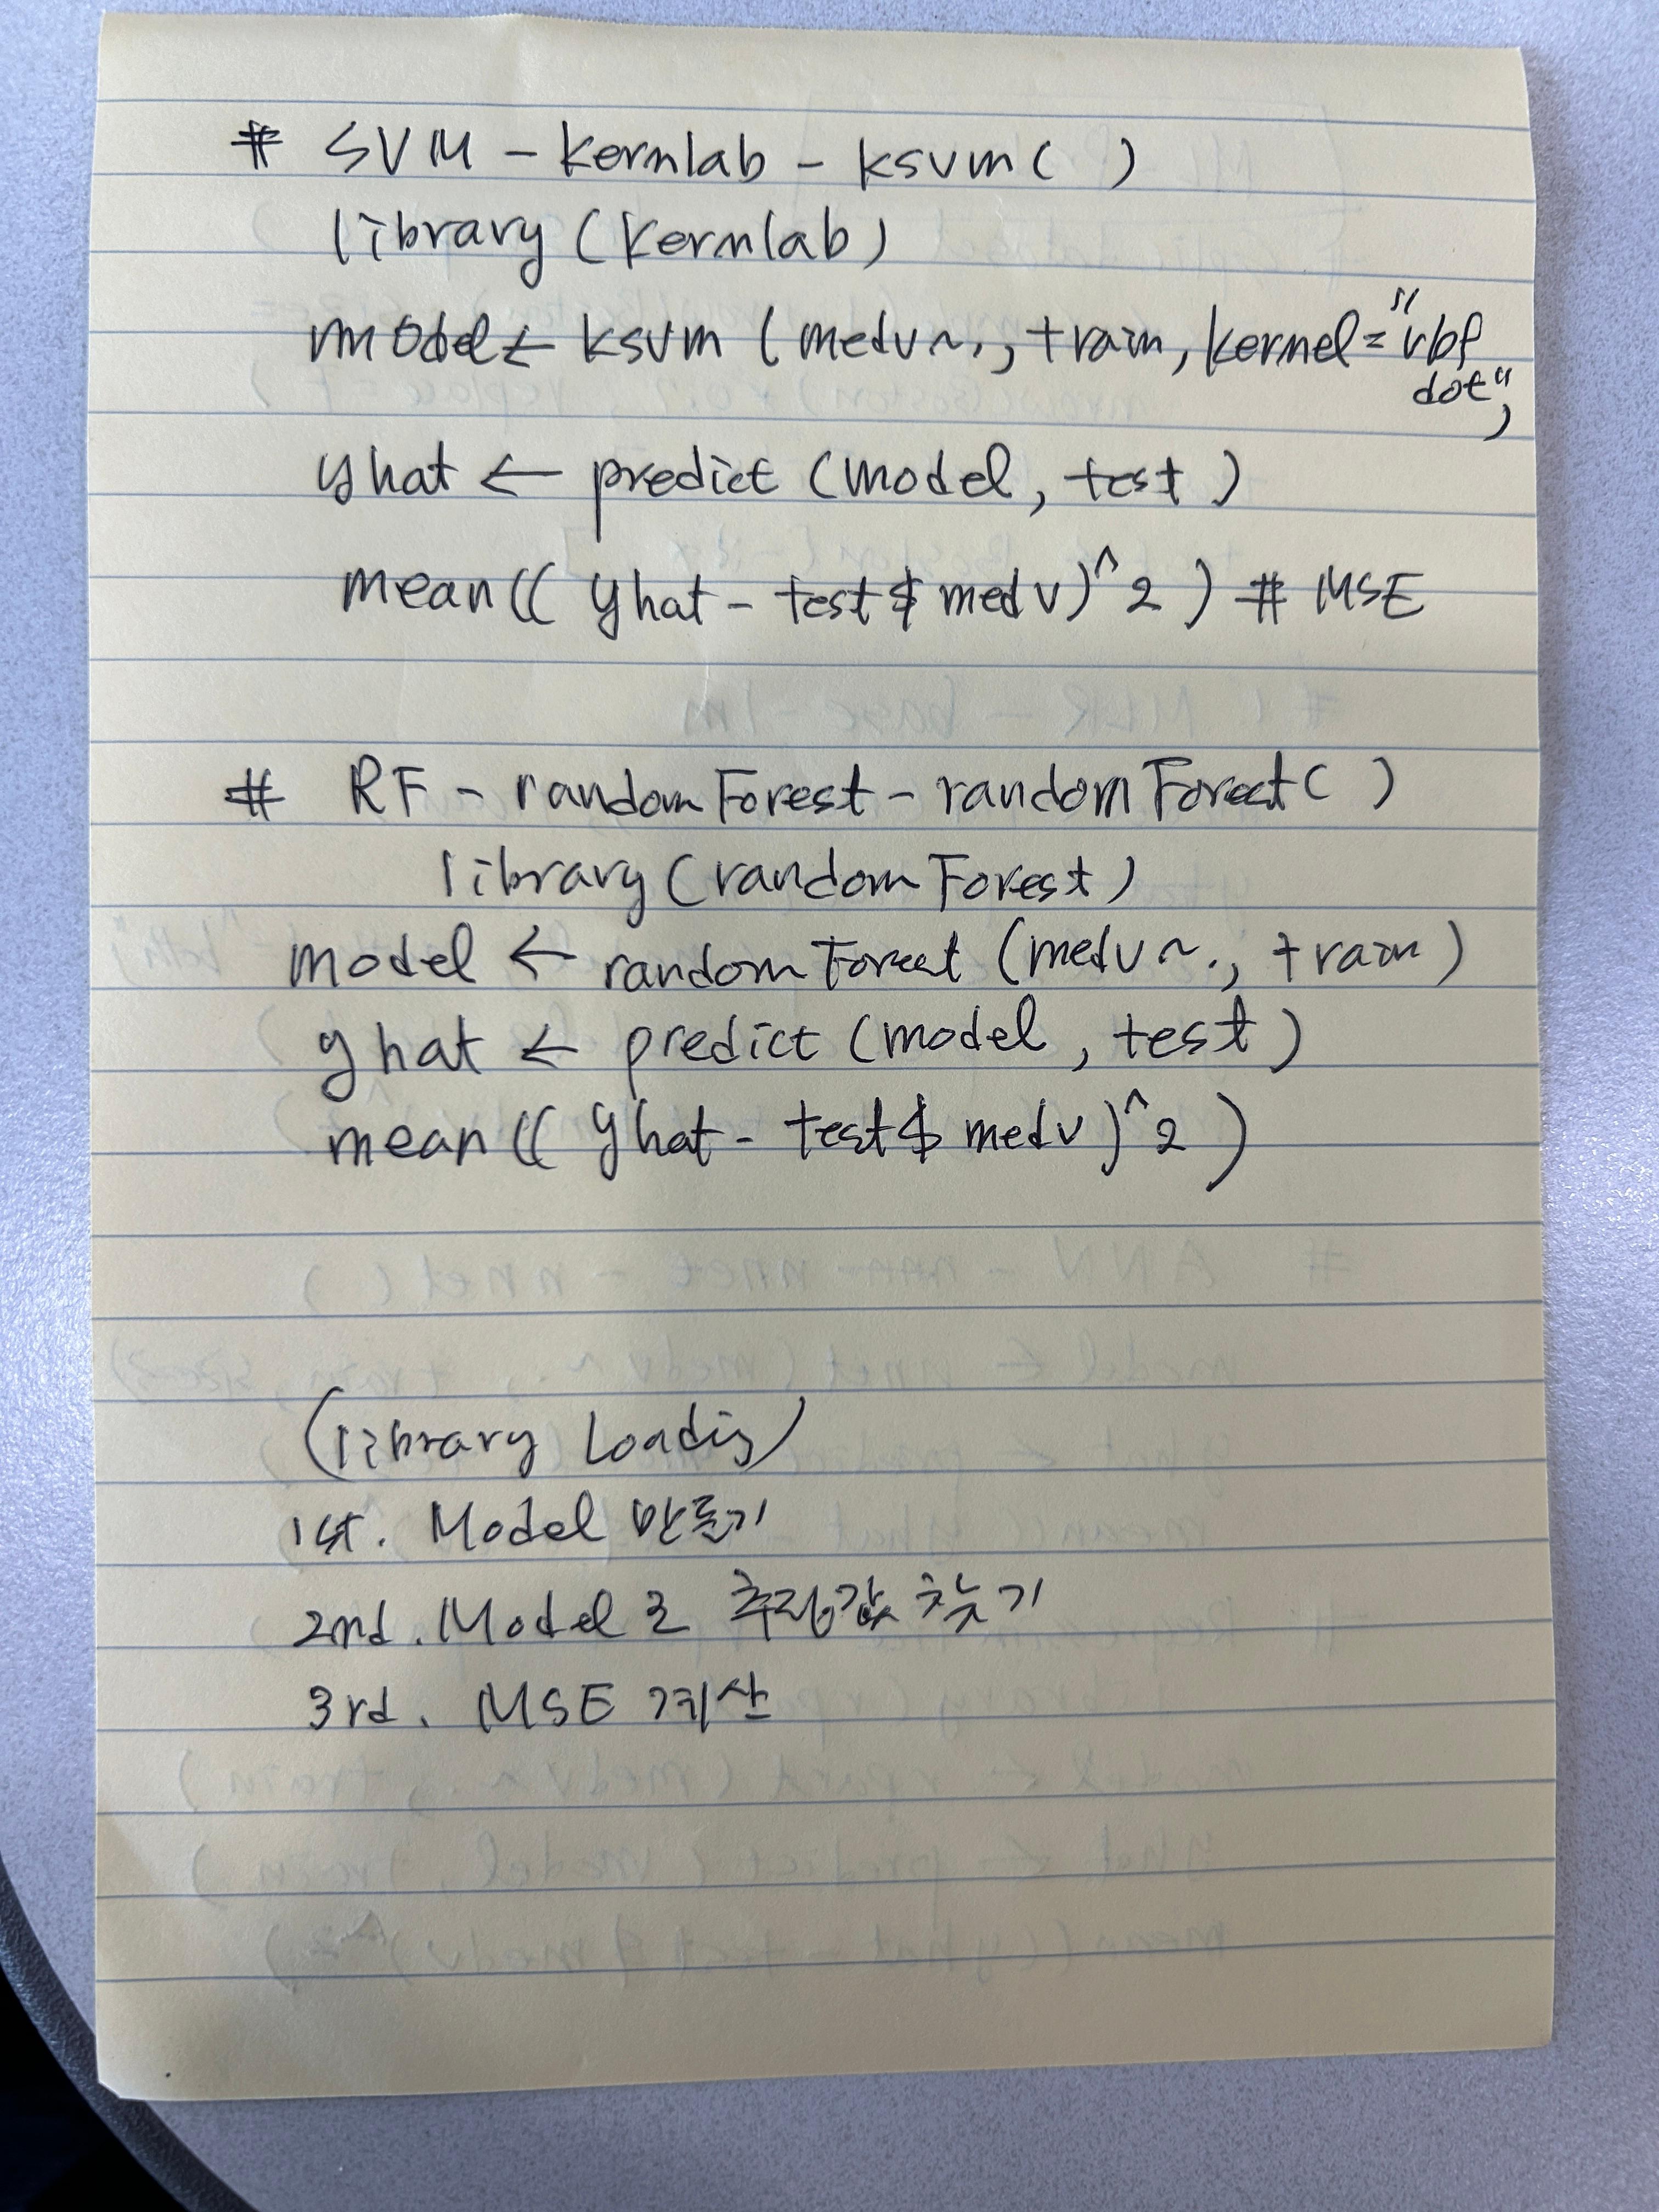 # SVM - kernlab - ksvm( )
library(kernlab)
model ← ksvm (medv~., train, kernel="rbf
dot")
yhat ← predict (model, test)
mean(( yhat - test$medv)^2) # MSE
# RF - randomForest - randomForest( )
library(randomForest)
model ← randomForest (medv~., train)
yhat ← predict (model, test)
mean(( yhat - test$medv)^2)
(library Loading)
1st. Model 만들기
2nd. Model로 추정값 찾기
3rd. MSE 계산